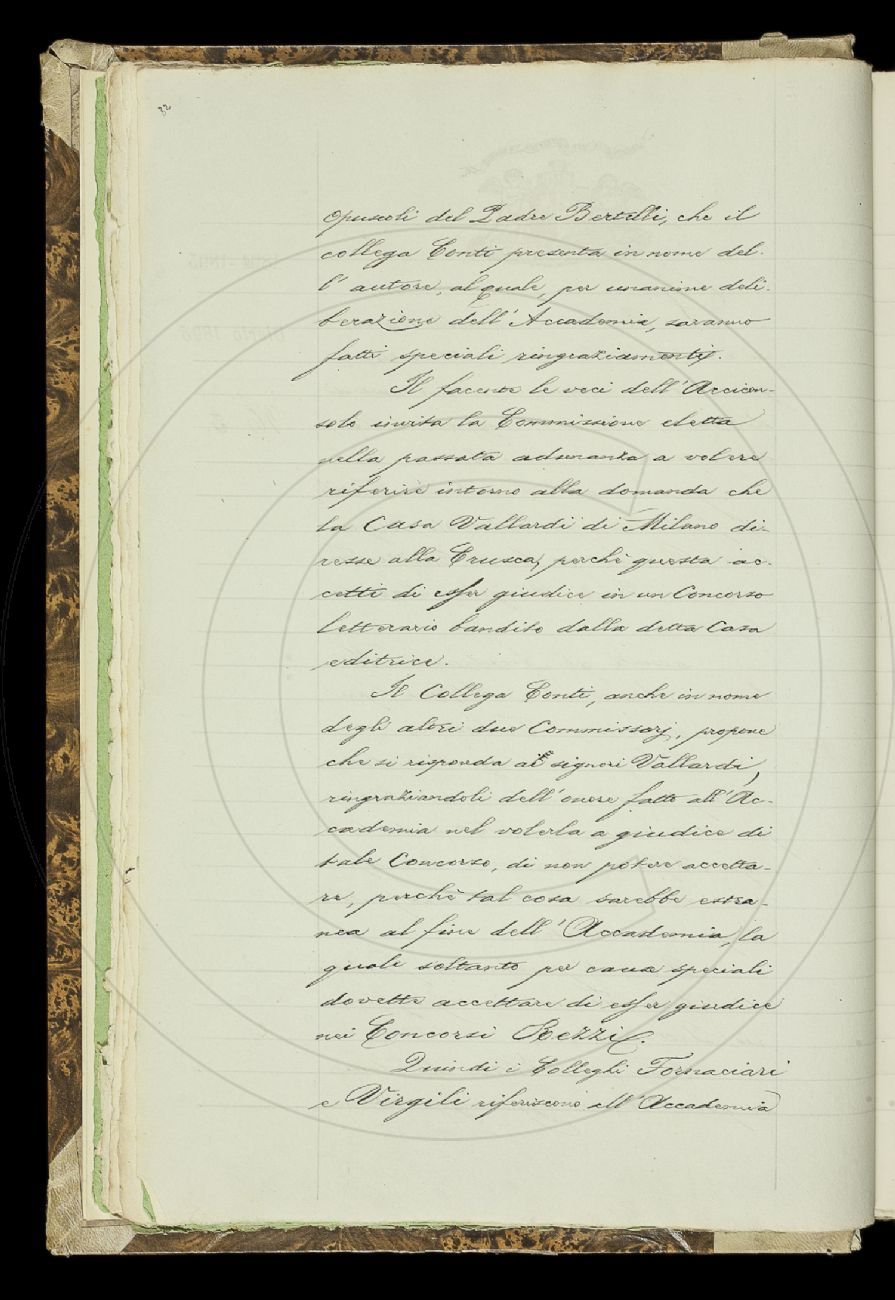 32
opuscoli del Padre Bertelli, che il
collega Conti presenta in nome del-
l'autore, al quale, per unanime deli-
berazione dell'Accademia, saranno
fatti speciali ringraziamenti.
Il facente le veci dell'Arcicon-
solo invita la Commissione eletta
nella passata adunanza a volere
riferire intorno alla domanda che
la Casa Vallardi di Milano di-
resse alla Crusca, perchè questa ac-
cetti di esser giudice in un Concorso
letterario bandito dalla detta Casa
editrice.
Il Collega Conti, anche in nome
degli altri due Commissarj, propone
che si risponda ai signori Vallardi,
ringraziandoli dell'onore fatto all'Ac-
cademia nel volerla a giudice di
tale Concorso, di non potere accetta-
re, perchè tal cosa sarebbe estra-
nea al fine dell'Accademia, la
quale soltanto per cause speciali
dovette accettare di esser giudice
nei Concorsi Rezzi.
Quindi i Colleghi Fornaciari
e Virgili riferiscono all'Accademia